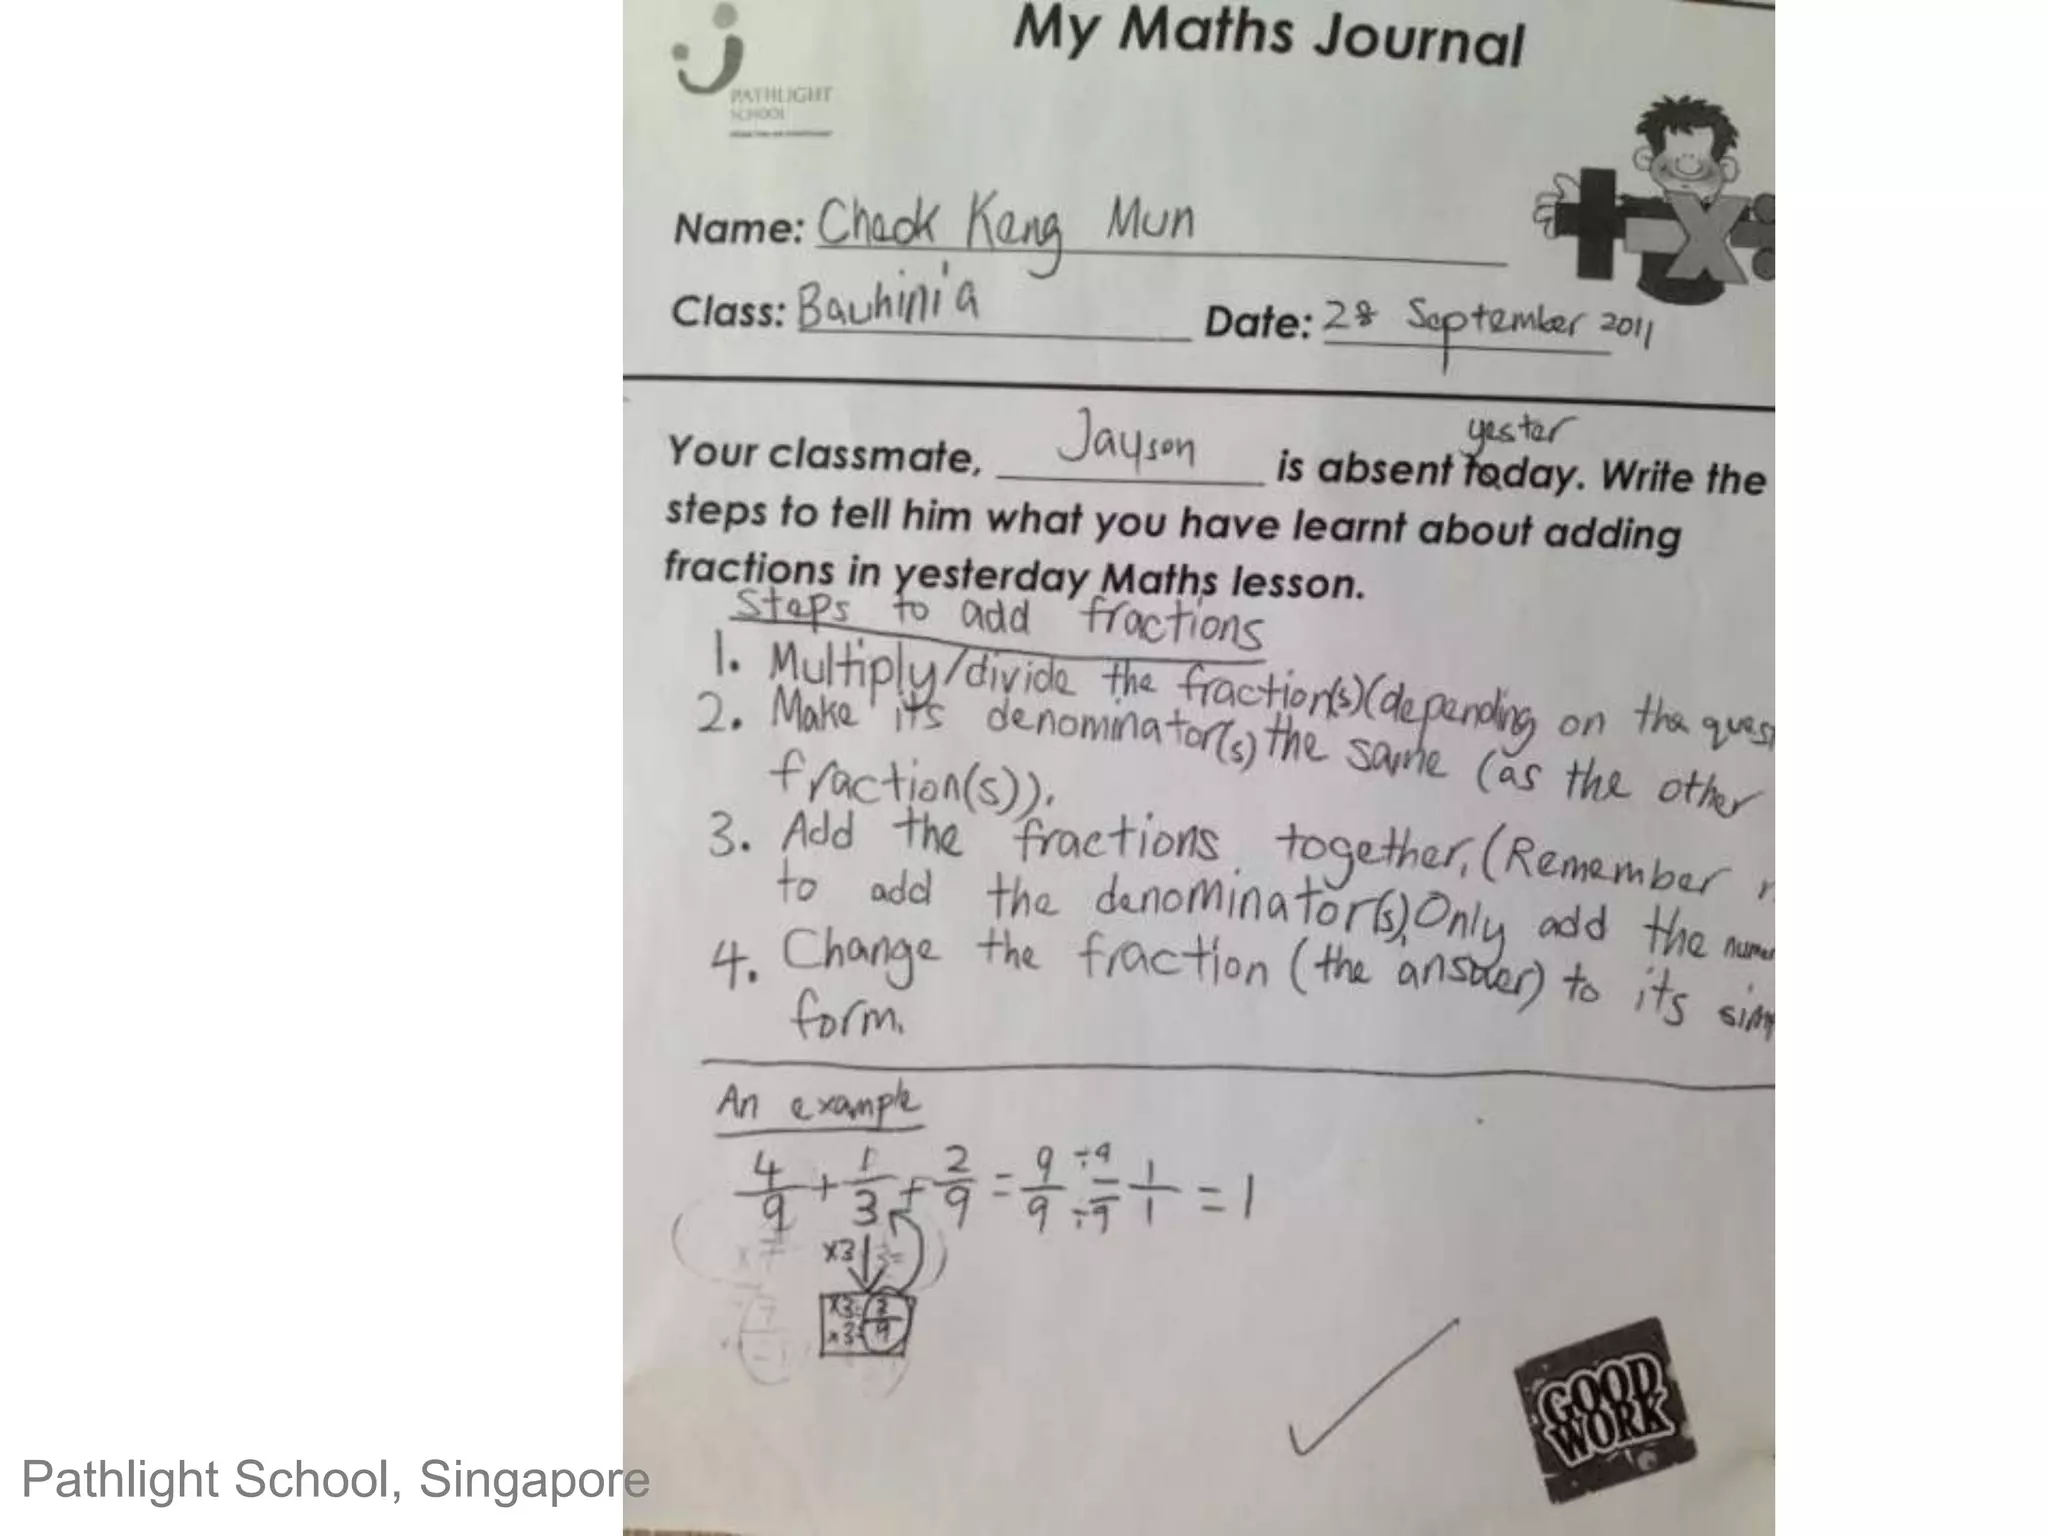 My Maths Journal
PATHLIGHT
SCHOOL
Name: Chack Kang Mun
Class: Bauhinia Date: 28 September 2011
yester
Your classmate, Jayson is absent today. Write the
steps to tell him what you have learnt about adding
fractions in yesterday Maths lesson.
Steps to add fractions
1. Multiply/divide the fraction(s)(depending on the quest
2. Make its denominator(s) the same (as the other
fraction(s)).
3. Add the fractions together. (Remember n
to add the denominator(s). Only add the numer
4. Change the fraction (the answer) to its simp
form.
An example
4/9 + 1/3 + 2/9 = 9/9 ÷9/÷9 = 1/1 = 1
×3
×3= 3
×3= 9
GOOD
WORK
Pathlight School, Singapore